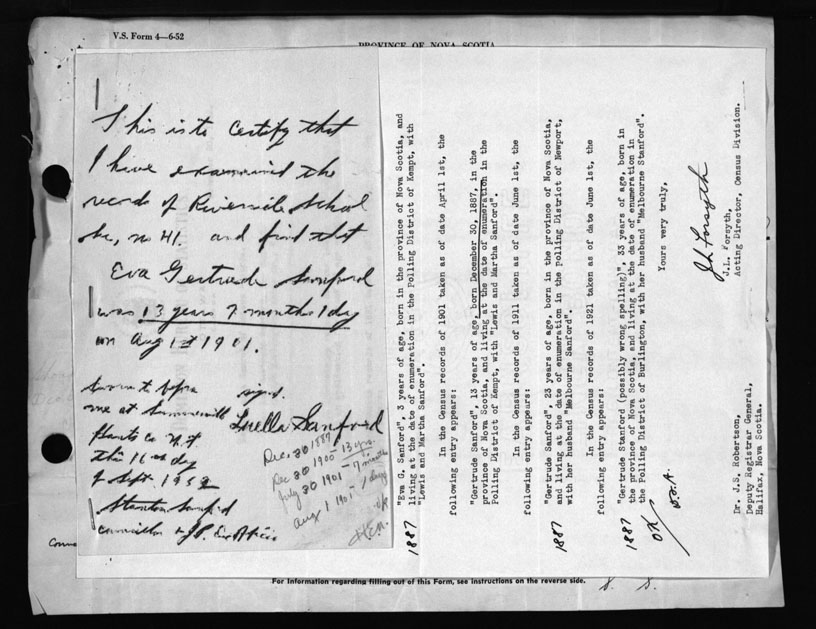 V.S. Form 4—6-52
PROVINCE OF NOVA SCOTIA
This is to Certify that
I have examined the
records of Riverside School
Sec, no 41. and find that
Eva Gertrude Sanford
was 13 years 7 months 1 day
on Aug 1st 1901.
Sworn to before
me at Summerville
Hants Co N.S
this 16th day
of Sept. 1952
Stanton Sanford
Councillor & J.P. Ex Officio
signed.
Luella Sanford
Dec. 30 1887
Dec 30 1900 - 13 yrs.
July 30 1901 - 7 months
Aug 1 1901 - 1 day
"Eva G. Sanford", 3 years of age, born in the province of Nova Scotia, and
living at the date of enumeration in the Polling District of Kempt, with
"Lewis and Martha Sanford".
1887
In the Census records of 1901 taken as of date April 1st, the
following entry appears:
"Gertrude Sanford", 13 years of age, born December 30, 1887, in the
province of Nova Scotia, and living at the date of enumeration in the
Polling District of Kempt, with "Lewis and Martha Sanford".
In the Census records of 1911 taken as of date June 1st, the
following entry appears:
"Gertrude Sanford", 23 years of age, born in the province of Nova Scotia,
and living at the date of enumeration in the Polling District of Newport,
with her husband "Melbourne Sanford".
1887
In the Census records of 1921 taken as of date June 1st, the
following entry appears:
"Gertrude Stanford (possibly wrong spelling)", 33 years of age, born in
the province of Nova Scotia, and living at the date of enumeration in
the Polling District of Burlington, with her husband "Melbourne Stanford".
1887
OK
Yours very truly,
J.L. Forsyth
J.L. Forsyth,
Acting Director, Census Division.
Dr. J.S. Robertson,
Deputy Registrar General,
Halifax, Nova Scotia.
For information regarding filling out of this Form, see instructions on the reverse side.